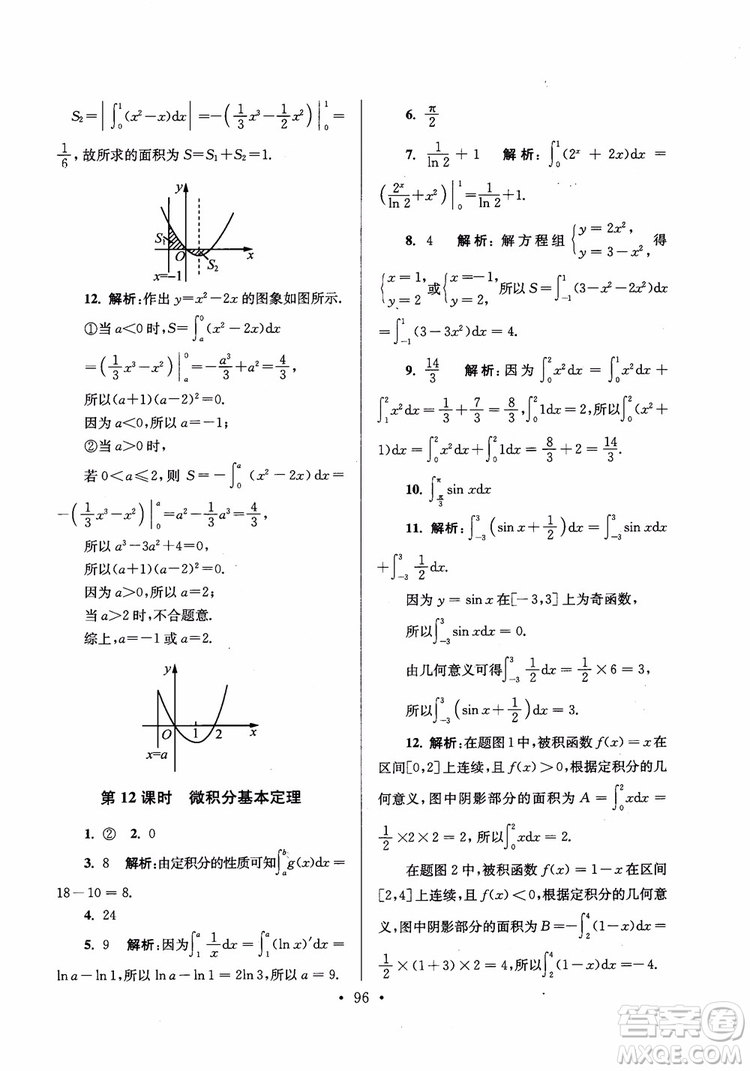 S₂=|∫₀¹(x²−x)dx|=−(1/3 x³−1/2 x²)|₀¹=
1/6,故所求的面积为 S=S₁+S₂=1.
y
S₁
O
S₂
x
x=−1
12. 解析:作出 y=x²−2x 的图象如图所示.
①当 a<0 时,S=∫ₐ⁰(x²−2x)dx
=(1/3 x³−x²)|ₐ⁰=−a³/3+a²=4/3,
所以(a+1)(a−2)²=0.
因为 a<0,所以 a=−1;
②当 a>0 时,
若 0<a≤2,则 S=−∫₀ᵃ(x²−2x)dx=
−(1/3 x³−x²)|₀ᵃ=a²−1/3 a³=4/3,
所以 a³−3a²+4=0,
所以(a+1)(a−2)²=0.
因为 a>0,所以 a=2;
当 a>2 时,不合题意.
综上,a=−1 或 a=2.
y
O
1
2
x
x=a
第 12 课时 微积分基本定理
1. ② 2. 0
3. 8 解析:由定积分的性质可知∫ₐᵇg(x)dx=
18−10=8.
4. 24
5. 9 解析:因为∫₁ᵃ 1/x dx=∫₁ᵃ(ln x)′dx=
ln a−ln 1,所以 ln a−ln 1=2ln3,所以 a=9.
6. π/2
7. 1/ln 2+1 解析:∫₀¹(2ˣ+2x)dx=
(2ˣ/ln 2+x²)|₀¹=1/ln 2+1.
8. 4 解析:解方程组{y=2x², y=3−x², 得
{x=1, y=2 或{x=−1, y=2, 所以 S=∫₋₁¹(3−x²−2x²)dx
=∫₋₁¹(3−3x²)dx=4.
9. 14/3 解析:因为∫₀²x²dx=∫₀¹x²dx+
∫₁²x²dx=1/3+7/3=8/3,∫₀²1dx=2,所以∫₀²(x²+
1)dx=∫₀²x²dx+∫₀²1dx=8/3+2=14/3.
10. ∫_{π/3}^{π} sin xdx
11. 解析:∫₋₃³(sin x+1/2)dx=∫₋₃³sin xdx
+∫₋₃³ 1/2 dx.
因为 y=sin x 在[−3,3]上为奇函数,
所以∫₋₃³sin xdx=0.
由几何意义可得∫₋₃³ 1/2 dx=1/2×6=3,
所以∫₋₃³(sin x+1/2)dx=3.
12. 解析:在题图 1 中,被积函数 f(x)=x 在
区间[0,2]上连续,且 f(x)>0,根据定积分的几
何意义,图中阴影部分的面积为 A=∫₀²xdx=
1/2×2×2=2,所以∫₀²xdx=2.
在题图 2 中,被积函数 f(x)=1−x 在区间
[2,4]上连续,且 f(x)<0,根据定积分的几何意
义,图中阴影部分的面积为 B=−∫₂⁴(1−x)dx=
1/2×(1+3)×2=4,所以∫₂⁴(1−x)dx=−4.
· 96 ·
答案圈
MXQE.COM